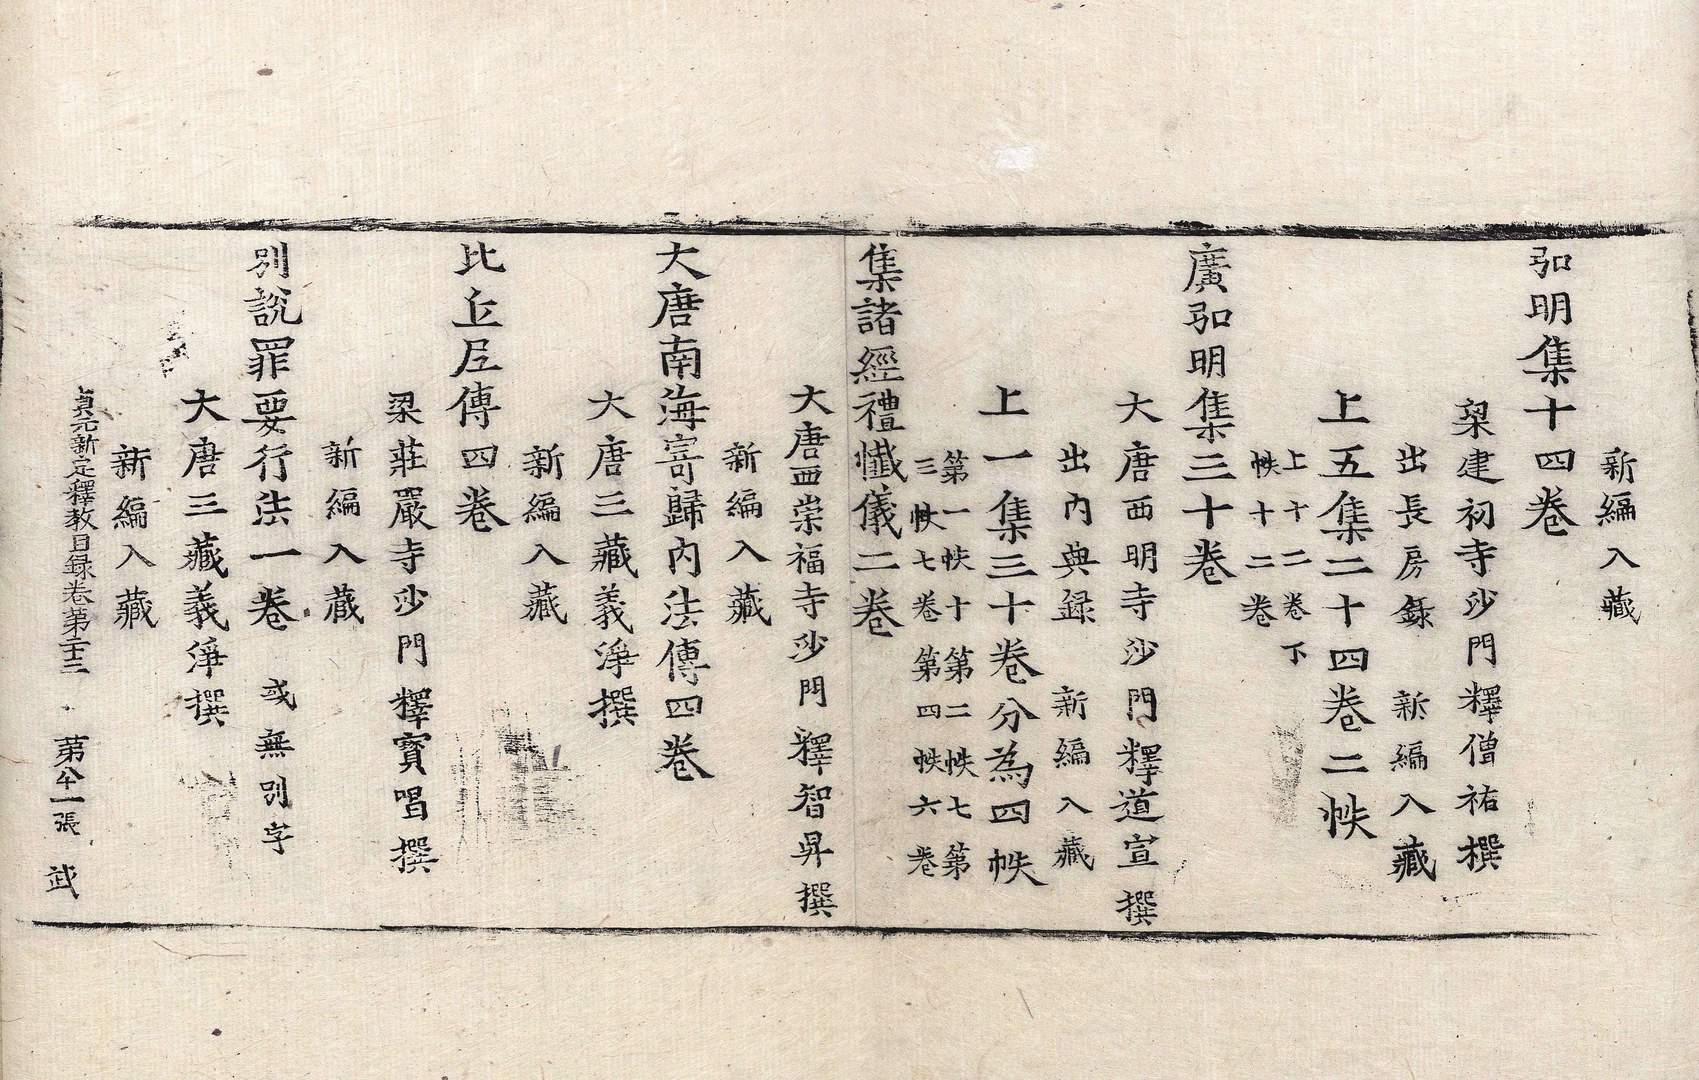 新編入藏
弘明集十四卷
梁建初寺沙門釋僧祐撰
出長房錄 新編入藏
上五集二十四卷二帙
上十二卷下
帙十二卷
廣弘明集三十卷
大唐西明寺沙門釋道宣撰
出內典録 新編入藏
上一集三十卷分為四帙
第一帙十第二帙七第
三帙七卷第四帙六卷
集諸經禮懺儀二卷
大唐西崇福寺沙門釋智昇撰
新編入藏
大唐南海寄歸內法傳四卷
大唐三藏義淨撰
新編入藏
比丘尼傳四卷
梁莊嚴寺沙門釋寶唱撰
新編入藏
別說罪要行法一卷 或無別字
大唐三藏義淨撰
新編入藏
貞元新定釋教目録卷第二十三 第八十一張 武